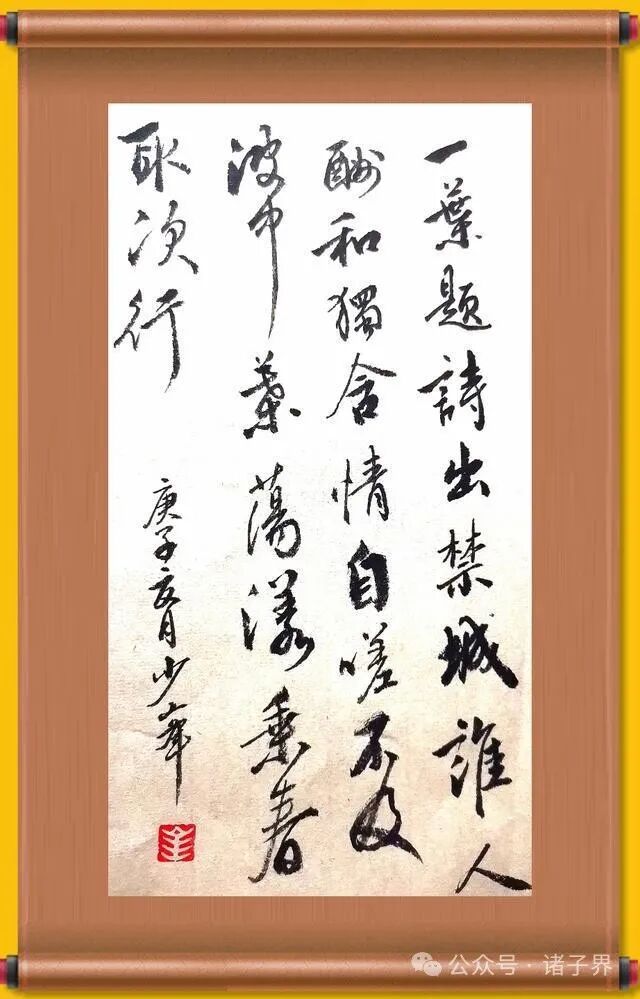 一葉題詩出禁城誰人
酬和獨含情自嗟不及
波中葉蕩漾乘春
取次行
庚子月少峯
公众号·诸子界